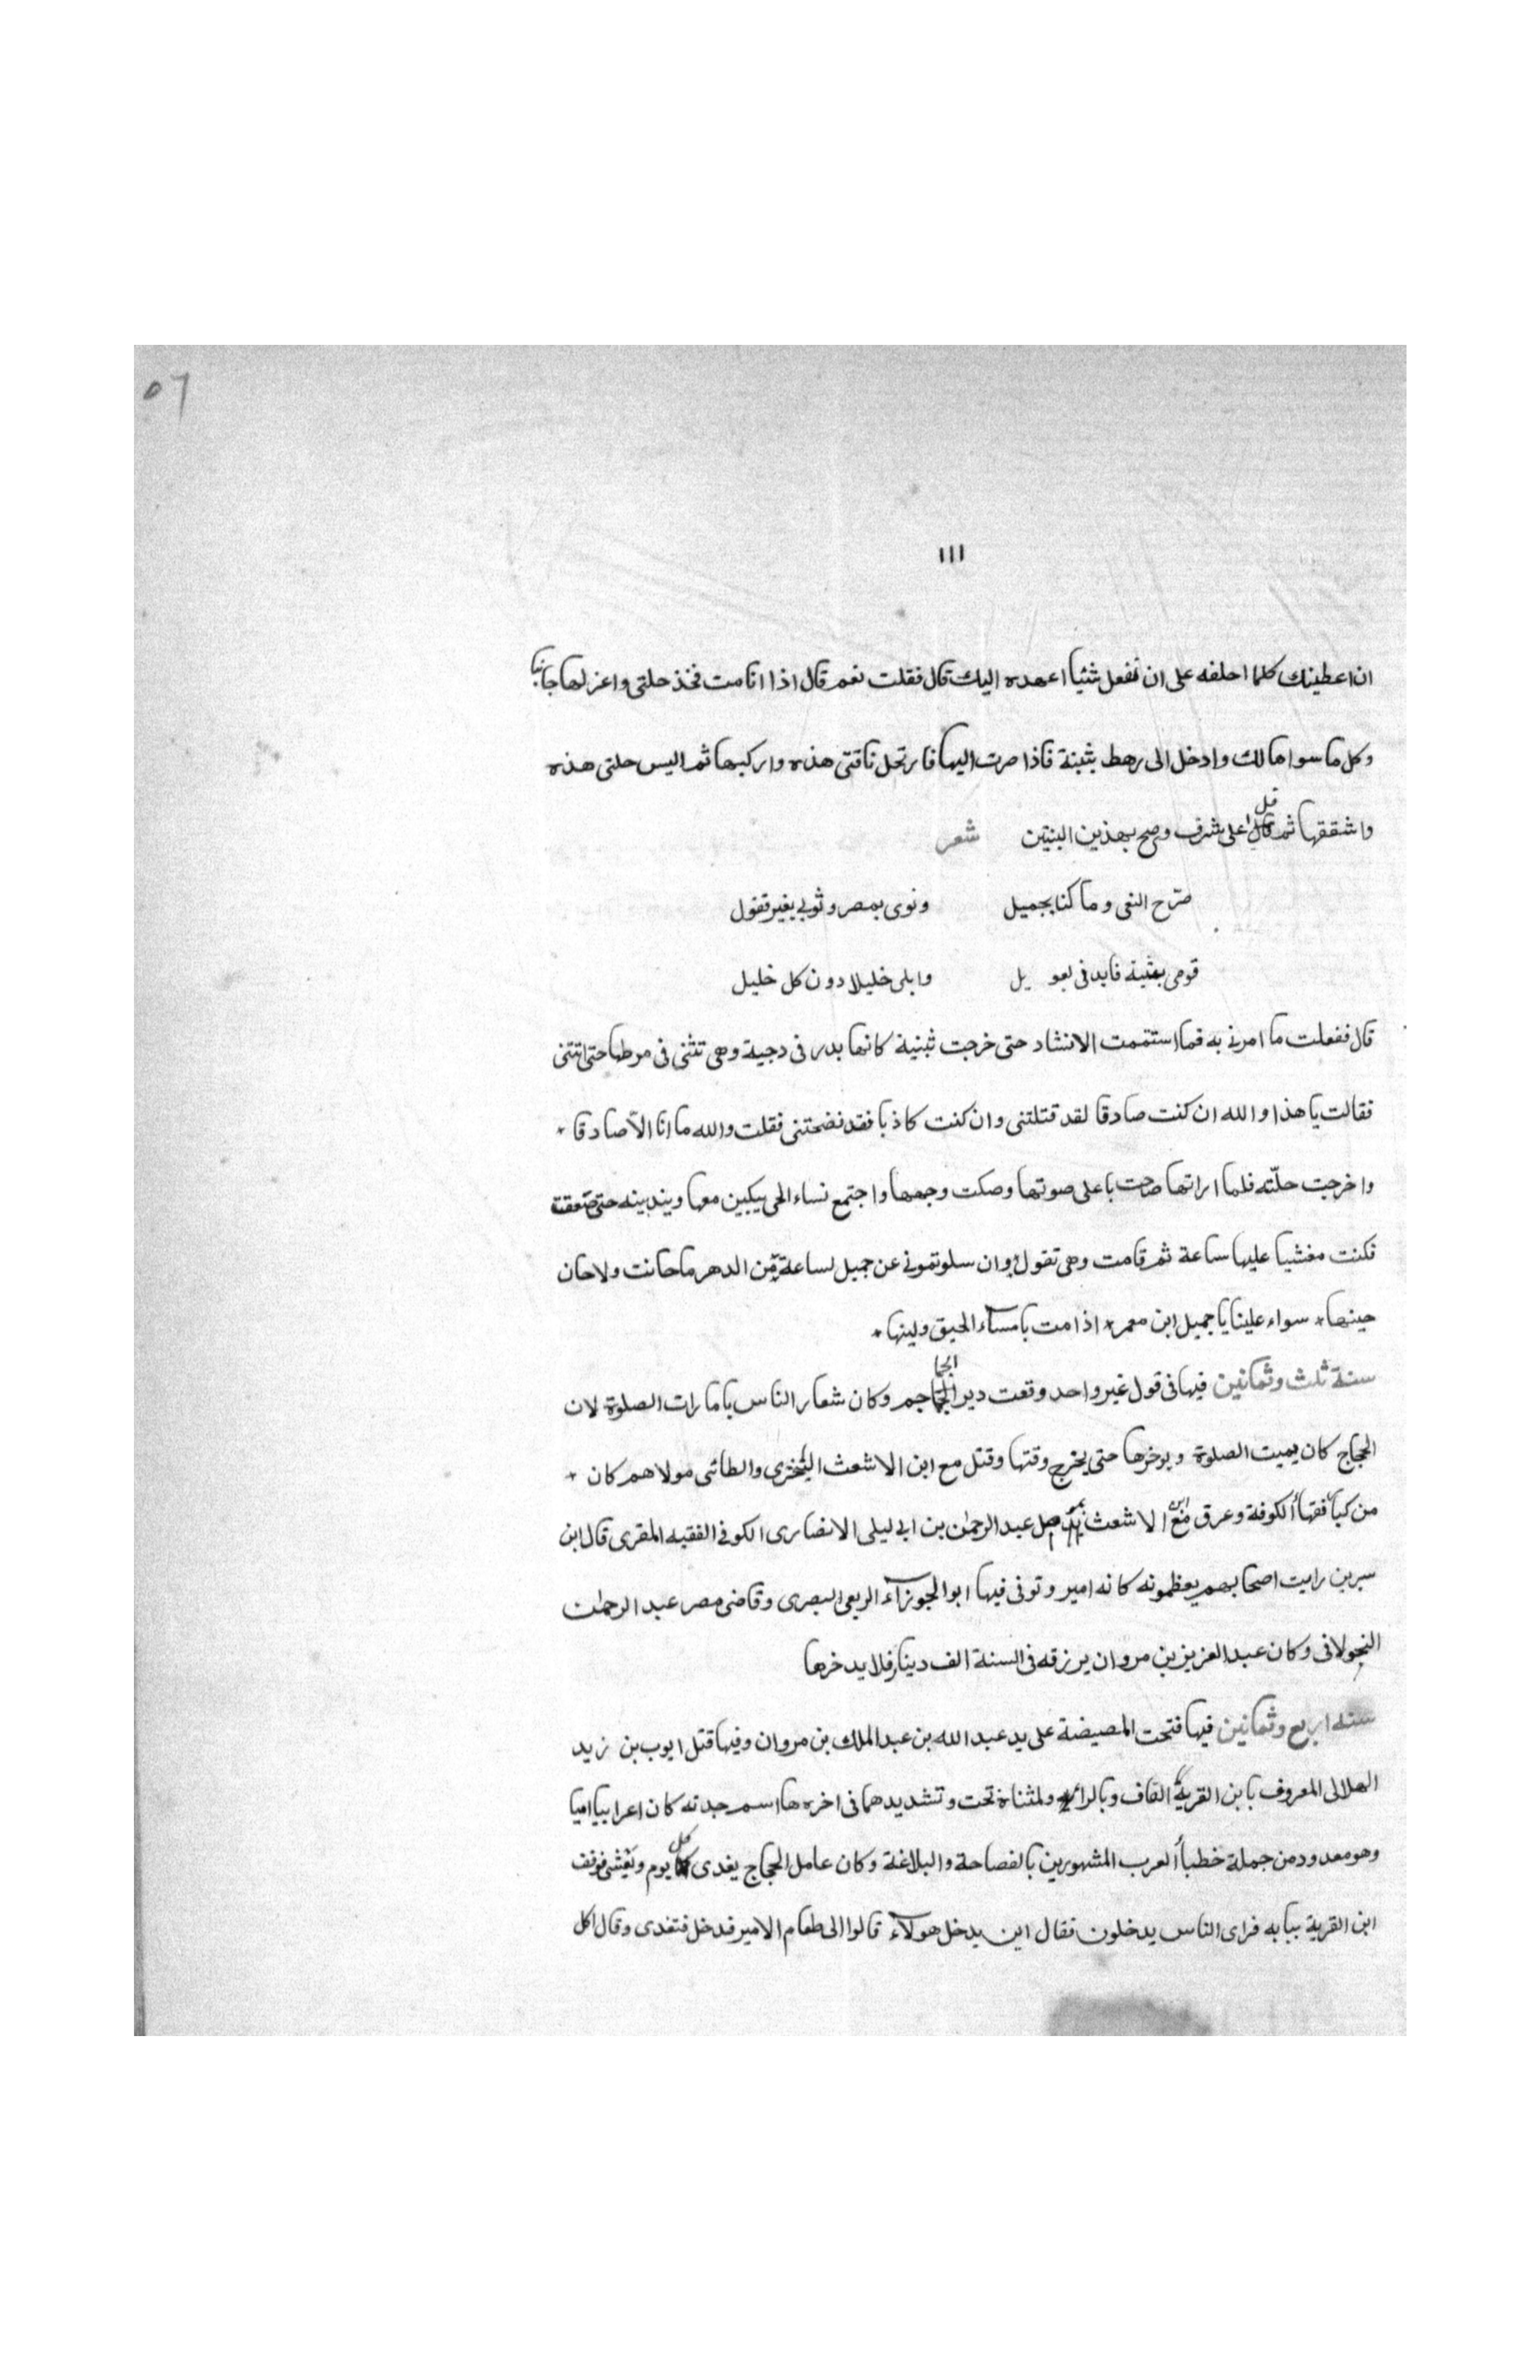 ٥٦
١١١
ان اعطينك كلما احلفه على ان تفعل شئيا اعهده اليك قال فقلت نعم قال اذا انا مت فخذ حلتى واعزلها جانبا
وكل ما سواها لك وادخل الى رهط بثينة فاذا صرت اليها فارتحل ناقتى هذه واركبها ثم البس حلتى هذه
واشققها ثم قل اعلى شرف وصح بهذين البيتين شعر
صرّح النعى وما كنا بجميل ونوى بمصر وثوبى بغير قفول
قومى بثينة فابدفى بعويل وابلى خليلا دون كل خليل
قال ففعلت ما امرنى به فما استتممت الانشاد حتى خرجت ثبنية كانها بدر فى دجية وهى تثنى فى مرطها حتى اتتنى
فقالت يا هذا والله ان كنت صادقا لقد قتلتنى وان كنت كاذبا فقد فضحتنى فقلت والله ما انا الاّ صادقا *
واخرجت حلّته فلما اراتها صاحت باعلى صوتها وصكت وجهها واجتمع نساء الحى يبكين معها ويندبينه حتى صعقت
فكنت مغشيا عليها ساعة ثم قامت وهى تقول وان سلوتمونى عن جميل لساعة من الدهر ما حانت ولا حان
حينها * سواء علينا يا جميل ابن معمر * اذا مت باسآء الحيق ولينها *
سنة ثلث وثمانين فيها فى قول غير واحد وقعت دير الجماجم وكان شعار الناس ياما رات الصلوة لان
الحجاج كان يميت الصلوة ويوخرها حتى يخرج وقتها وقتل مع ابن الاشعث البخترى والطائى مولاهم كان *
من كبأ فقهأ الكوفة وعرق مع ابن الاشعث عبد الرحمٰن بن ابى ليلى الانصارى الكوفى الفقيه المقرى قال ابن
سيرين رايت اصحابهم يعظمونه كانه امير وتوفى فيها ابوالجوزآء الربعى البصرى وقاضى مصر عبد الرحمٰن
الخولانى وكان عبد العزيز بن مروان يرزقه فى السنة الف دينار فلا يدخرها
سنة اربع وثمانين فيها فتحت المصيصة على يد عبد الله بن عبد الملك بن مروان وفيها قتل ايوب بن زيد
الهلالى المعروف بابن القرية القاف وبالراء ولمثناة تحت وتشديدهما فى اخره ها اسم جدته كان اعرابيا اميا
وهو معدود من جملة خطبأ العرب المشهورين بالفصاحة والبلاغة وكان عامل الحجاج يغدى كل يوم ويعشى فوقف
ابن القرية ببابه فراى الناس يدخلون فقال اين يدخل هولآء قالوا الى طعام الامير فدخل فتغدى وقال اكل